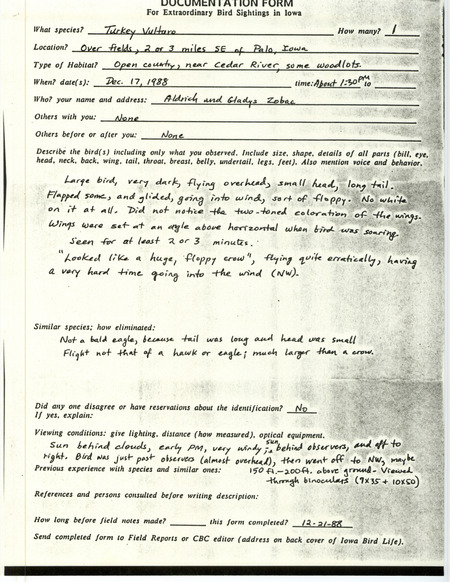 DOCUMENTATION FORM
For Extraordinary Bird Sightings in Iowa
What species? Turkey Vulture How many? 1
Location? Over fields, 2 or 3 miles SE of Palo, Iowa
Type of Habitat? Open country, near Cedar River, some woodlots.
When? date(s): Dec. 17, 1988 time: About 1:30 PM to
Who? your name and address: Aldrich and Gladys Zobac
Others with you: None
Others before or after you: None
Describe the bird(s) including only what you observed. Include size, shape, details of all parts (bill, eye,
head, neck, back, wing, tail, throat, breast, belly, undertail, legs, feet). Also mention voice and behavior.
Large bird, very dark, flying overhead, small head, long tail.
Flapped some, and glided, going into wind, sort of floppy. No white
on it at all. Did not notice the two-toned coloration of the wings.
Wings were set at an angle above horizontal when bird was soaring.
Seen for at least 2 or 3 minutes.
"Looked like a huge, floppy crow", flying quite erratically, having
a very hard time going into the wind (NW).
Similar species; how eliminated:
Not a bald eagle, because tail was long and head was small
Flight not that of a hawk or eagle; much larger than a crow.
Did any one disagree or have reservations about the identification? No
If yes, explain:
Viewing conditions: give lighting, distance (how measured), optical equipment.
Sun behind clouds, early PM, very windy, sun is behind observers, and off to
right. Bird was just past observers (almost overhead), then went off to NW, maybe
Previous experience with species and similar ones: 150 ft.-200ft. above ground- Viewed
through binoculars (7x35 + 10x50)
References and persons consulted before writing description:
How long before field notes made? this form completed? 12-21-88
Send completed form to Field Reports or CBC editor (address on back cover of Iowa Bird Life).